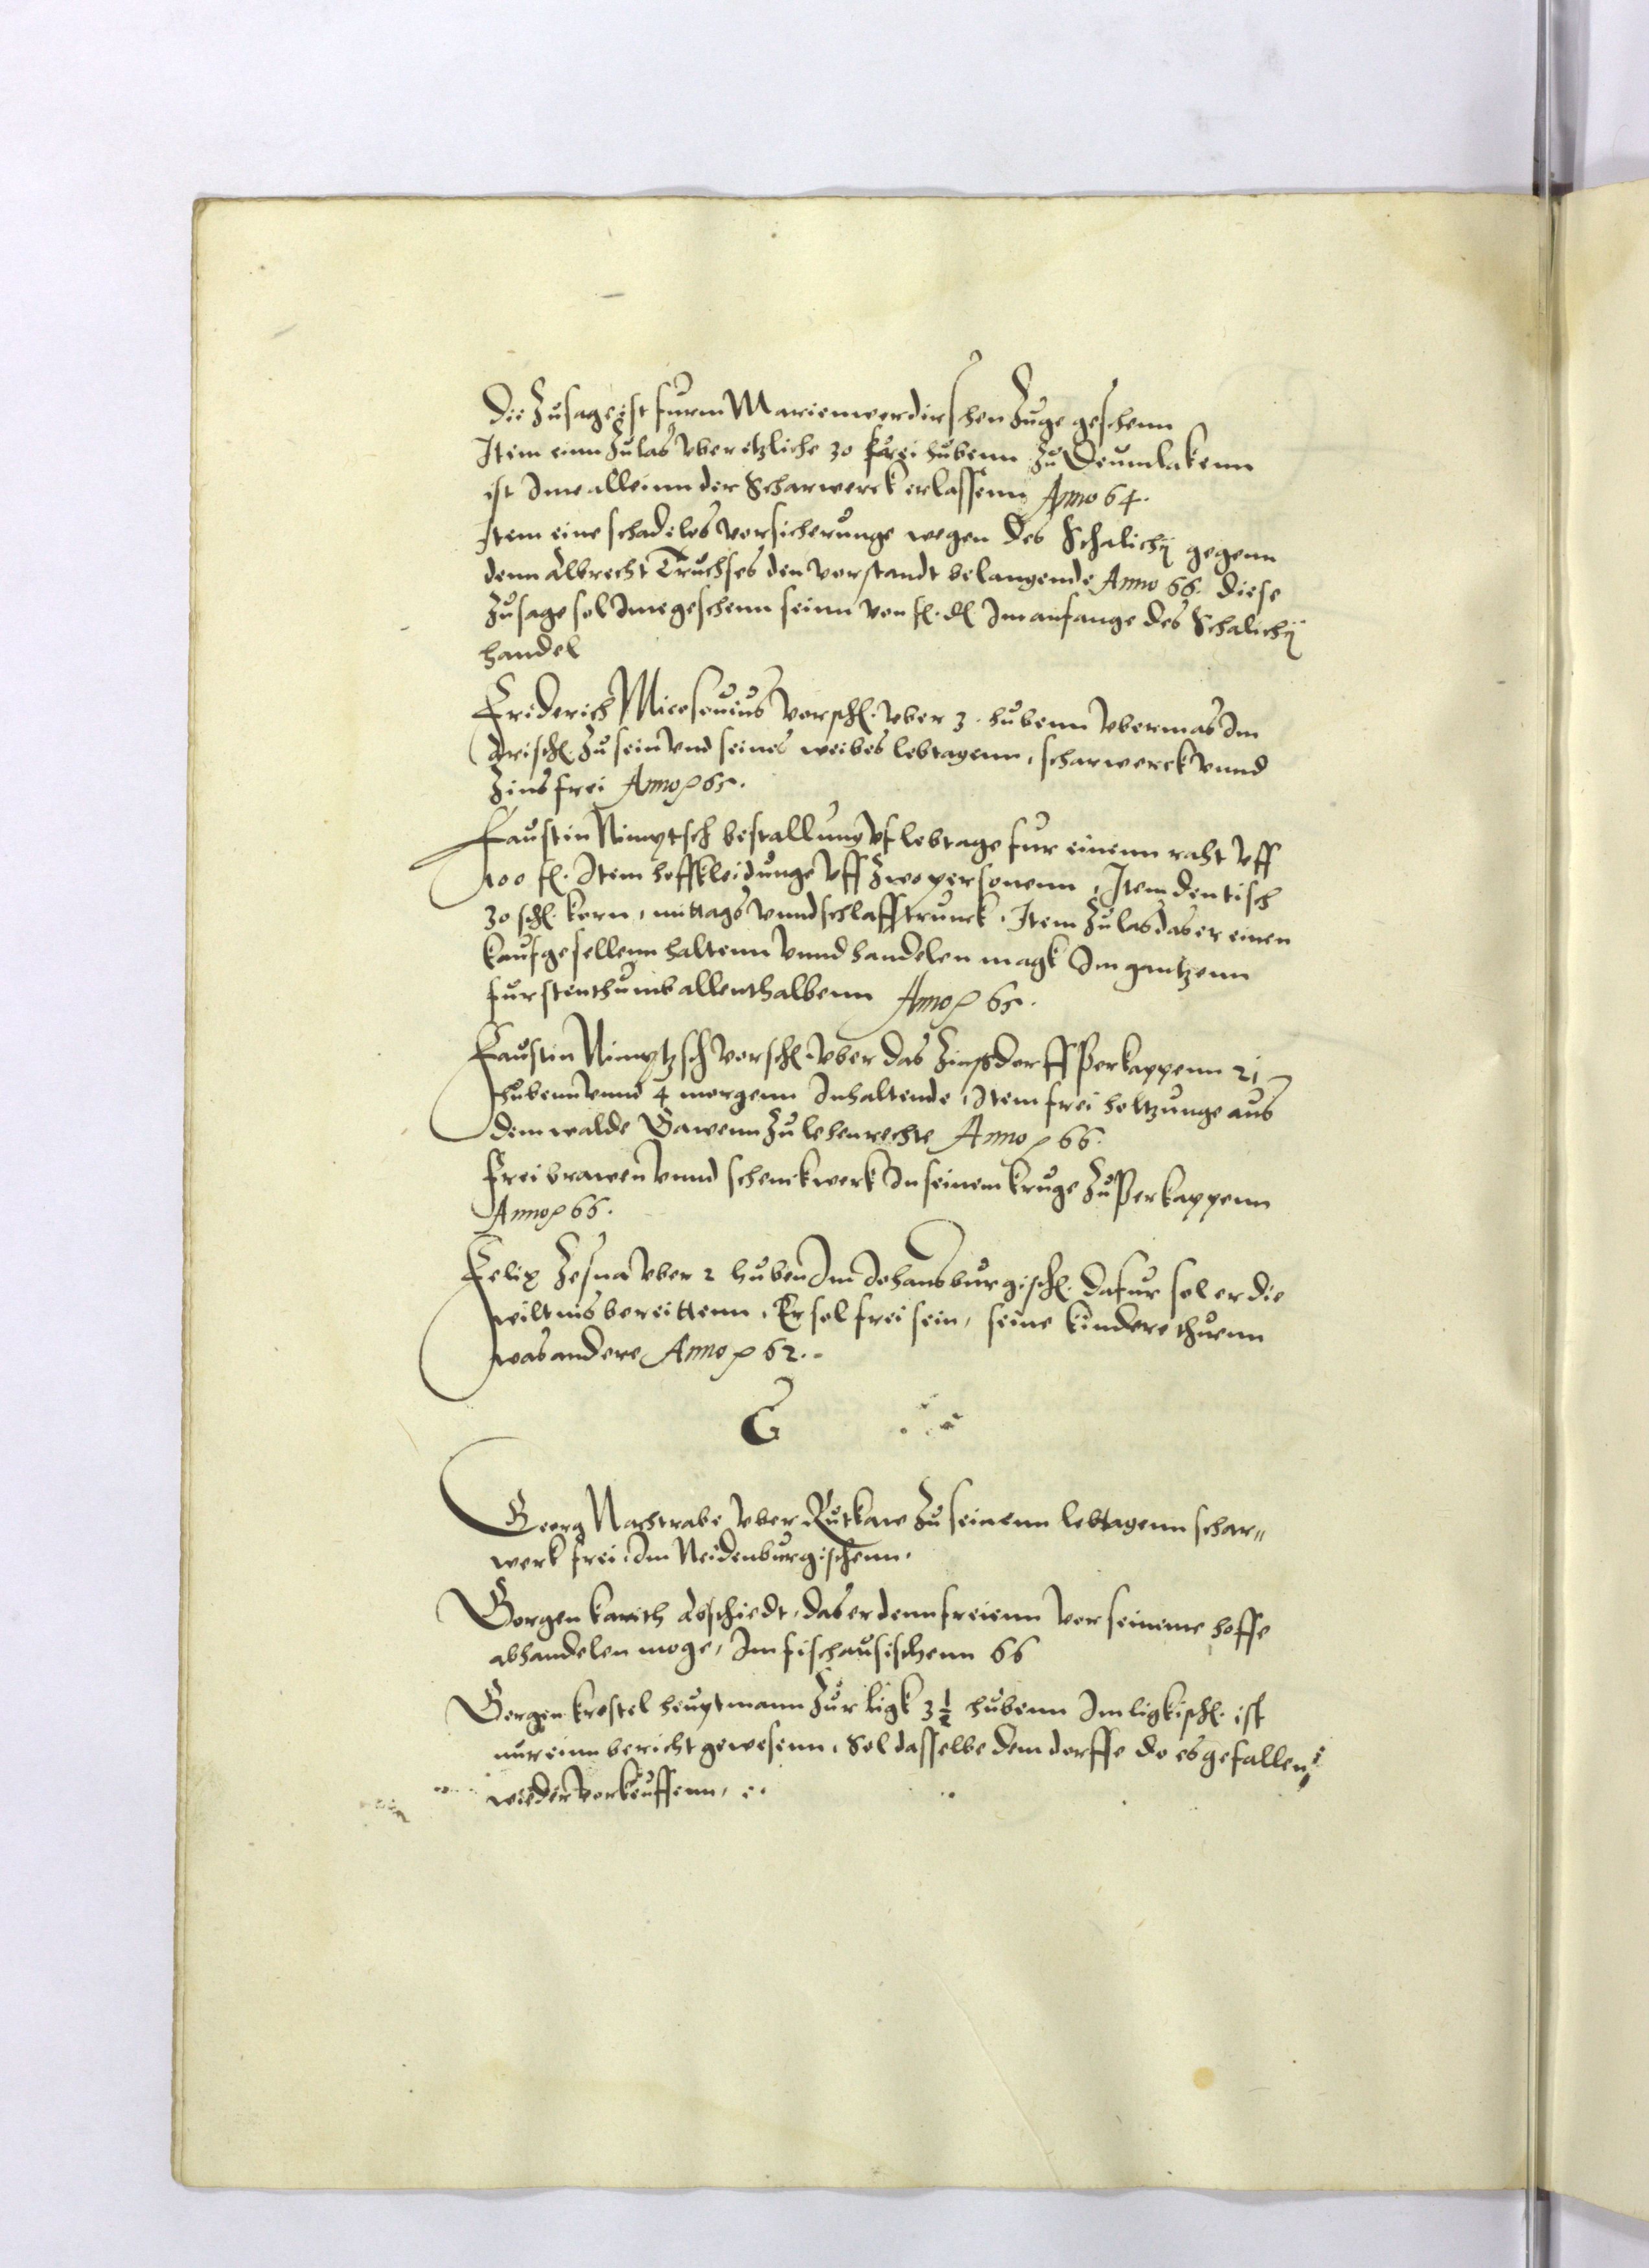 Die Zusage ist furm Marienwerdirschen Zuge geschenn
Item einn Zulas vber etzliche 30 frei hubenn zu Deumlakenn
ist Ime alleinn der Scharwerck erlassenn Anno 64.
Item eine schadelos vorsicherunge wegen des Schalichij gegenn
denn Albrecht Truchses den vorstandt belangende Anno 66. diese
Zusage sol Ime geschenn seinn von f. d. Im anfange des Schalichij
handel
Friderich vorsch. vber 3. hubenn vbermas Im
zu sein vnd seines weibes lebtagenn, scharwerck vnnd
Zins frei Anno p 65.
Faustin Nimptsch bestallung vf lebtage fur einenn raht vff
100 fl. Item hoffkleidunge vff zwo personenn, Item den tisch
30 sch. korn, mittags vnnd schlafftrunck. Item Zulas das er einen
kaufgesellenn haltenn vnnd handelen magk Im gantzenn
furstenthumb allenthalbenn Anno p 65.
Faustin Nimptzsch vorsch. vber das Zinsdorff Perkappenn 21
hubenn vnnd 4 morgenn Inhaltende, Item frei holtzunge aus
dem walde Gawenn zu lehenrechte Anno p 66.
Frei brawen vnnd schenckwerk In seinem kruge zu Perkappenn
Anno p 66.
Felix Zesna vber 2 huben Im Johansburgisch. dafur sol er die
wiltnis bereittenn. Er sol frei sein, seine kindere thuenn
was andere Anno p 62.
G
Georg Nachtrabe vber Rutkaw zu seinenn lebtagenn schar„
werk frei, Im Neidenburgischenn.
Gorgen Abschiedt, das er denn freienn vor seineme hoffe
abhandelen moge, Im fischausischenn 66
Gorgen krostel heuptmann zur ligk 3½ hubenn Im ligkisch. ist
nur einn bericht gewesenn. Sol dasselbe dem dorffe do es gefallen
wieder vorkeuffenn,